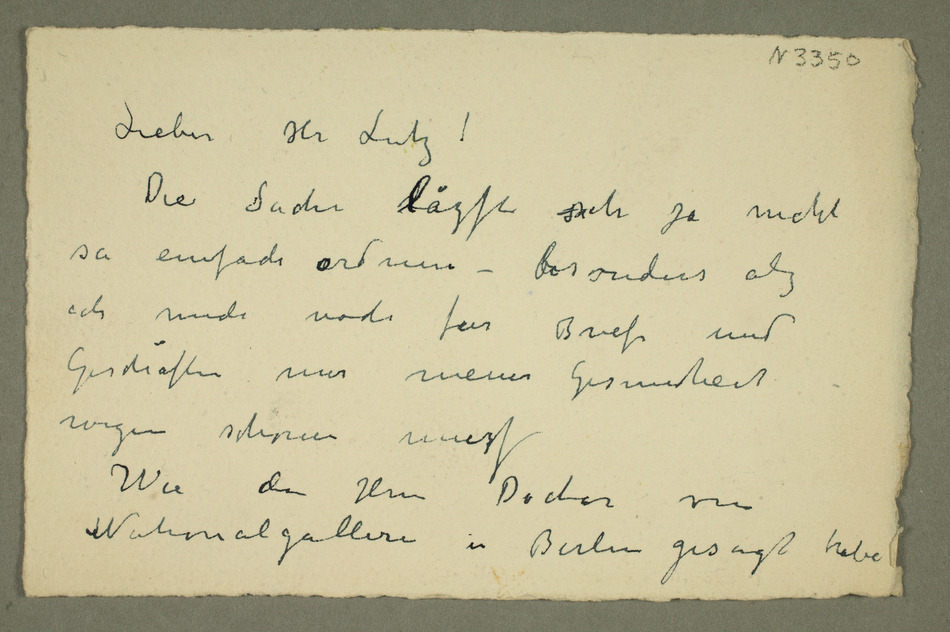 N 3350
Lieber Hr Lutz!
Die Sache läszt sich ja nicht
so einfach ordnen – besonders als
ich mich noch für Briefe und
Geschäften nur meiner Gesundheit
wegen schonen musz
Wie den Herrn Doctor von
Nationalgallerie in Berlin gesagt habe